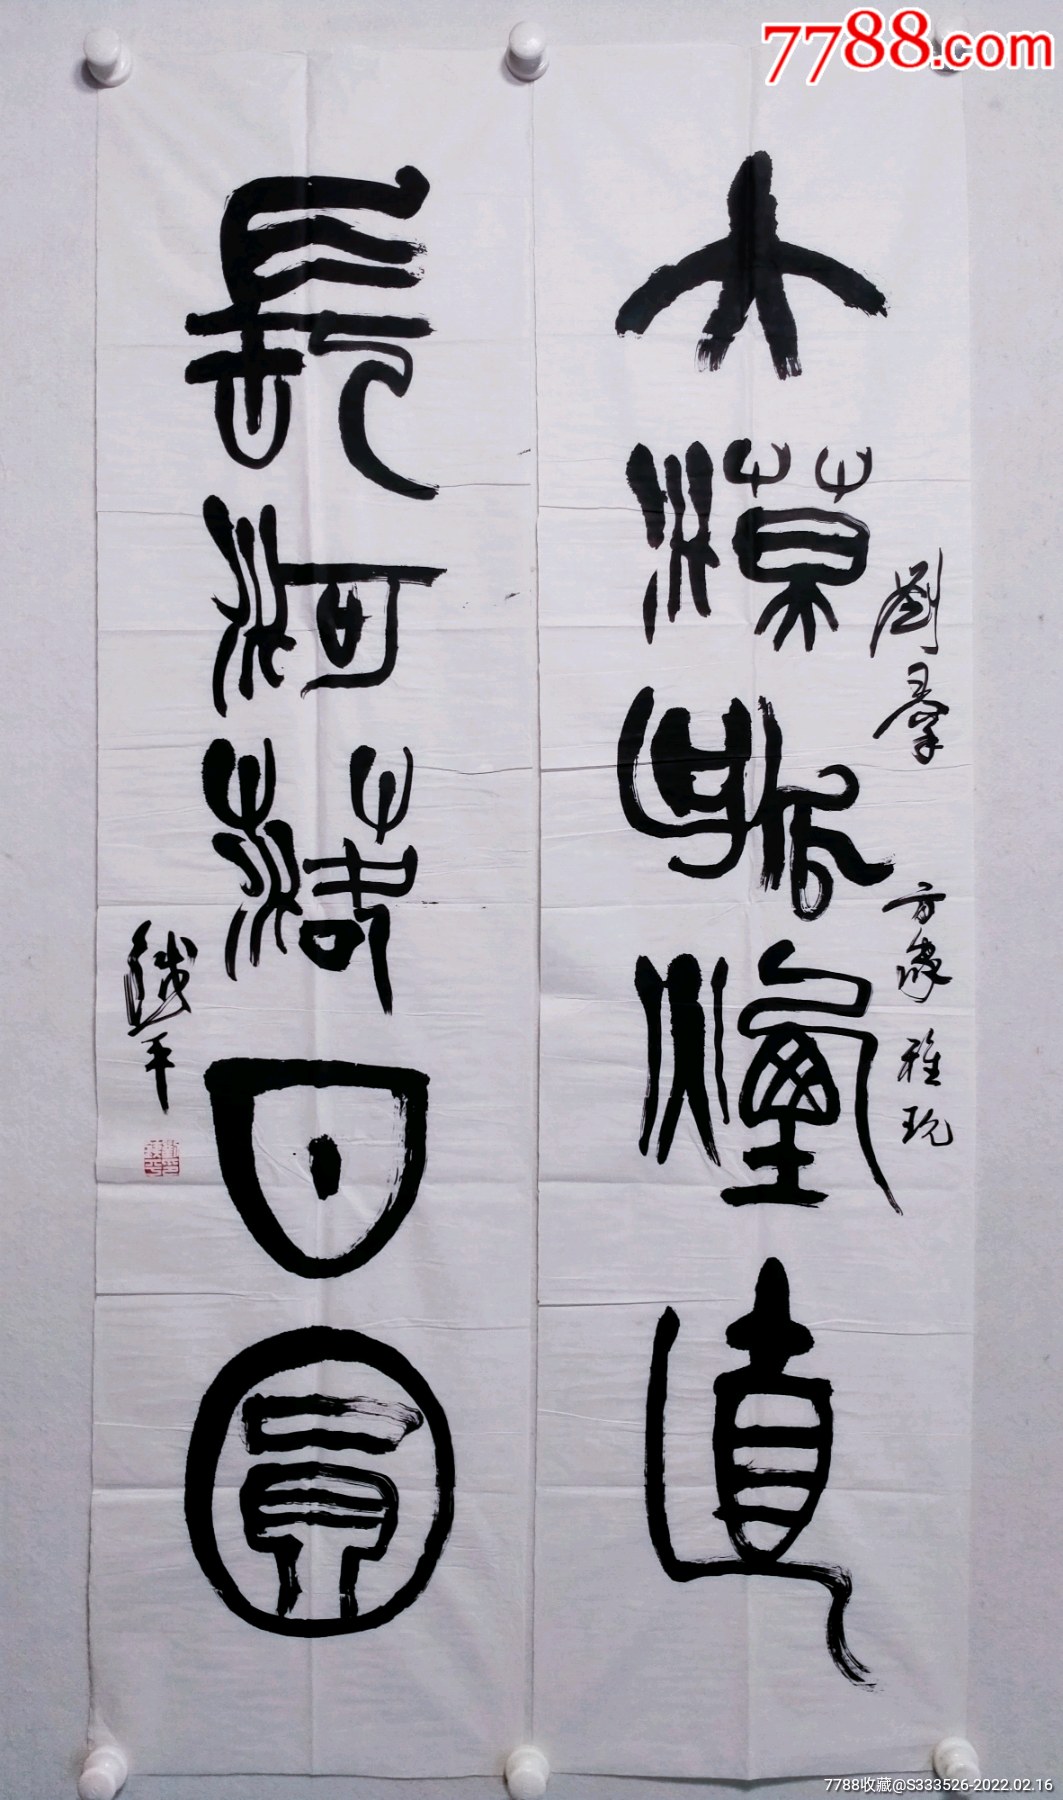 7788.com
大漠孤煙直
劉羣
方家雅玩
長河落日圓
鐵平
7788收藏@S333526-2022.02.16